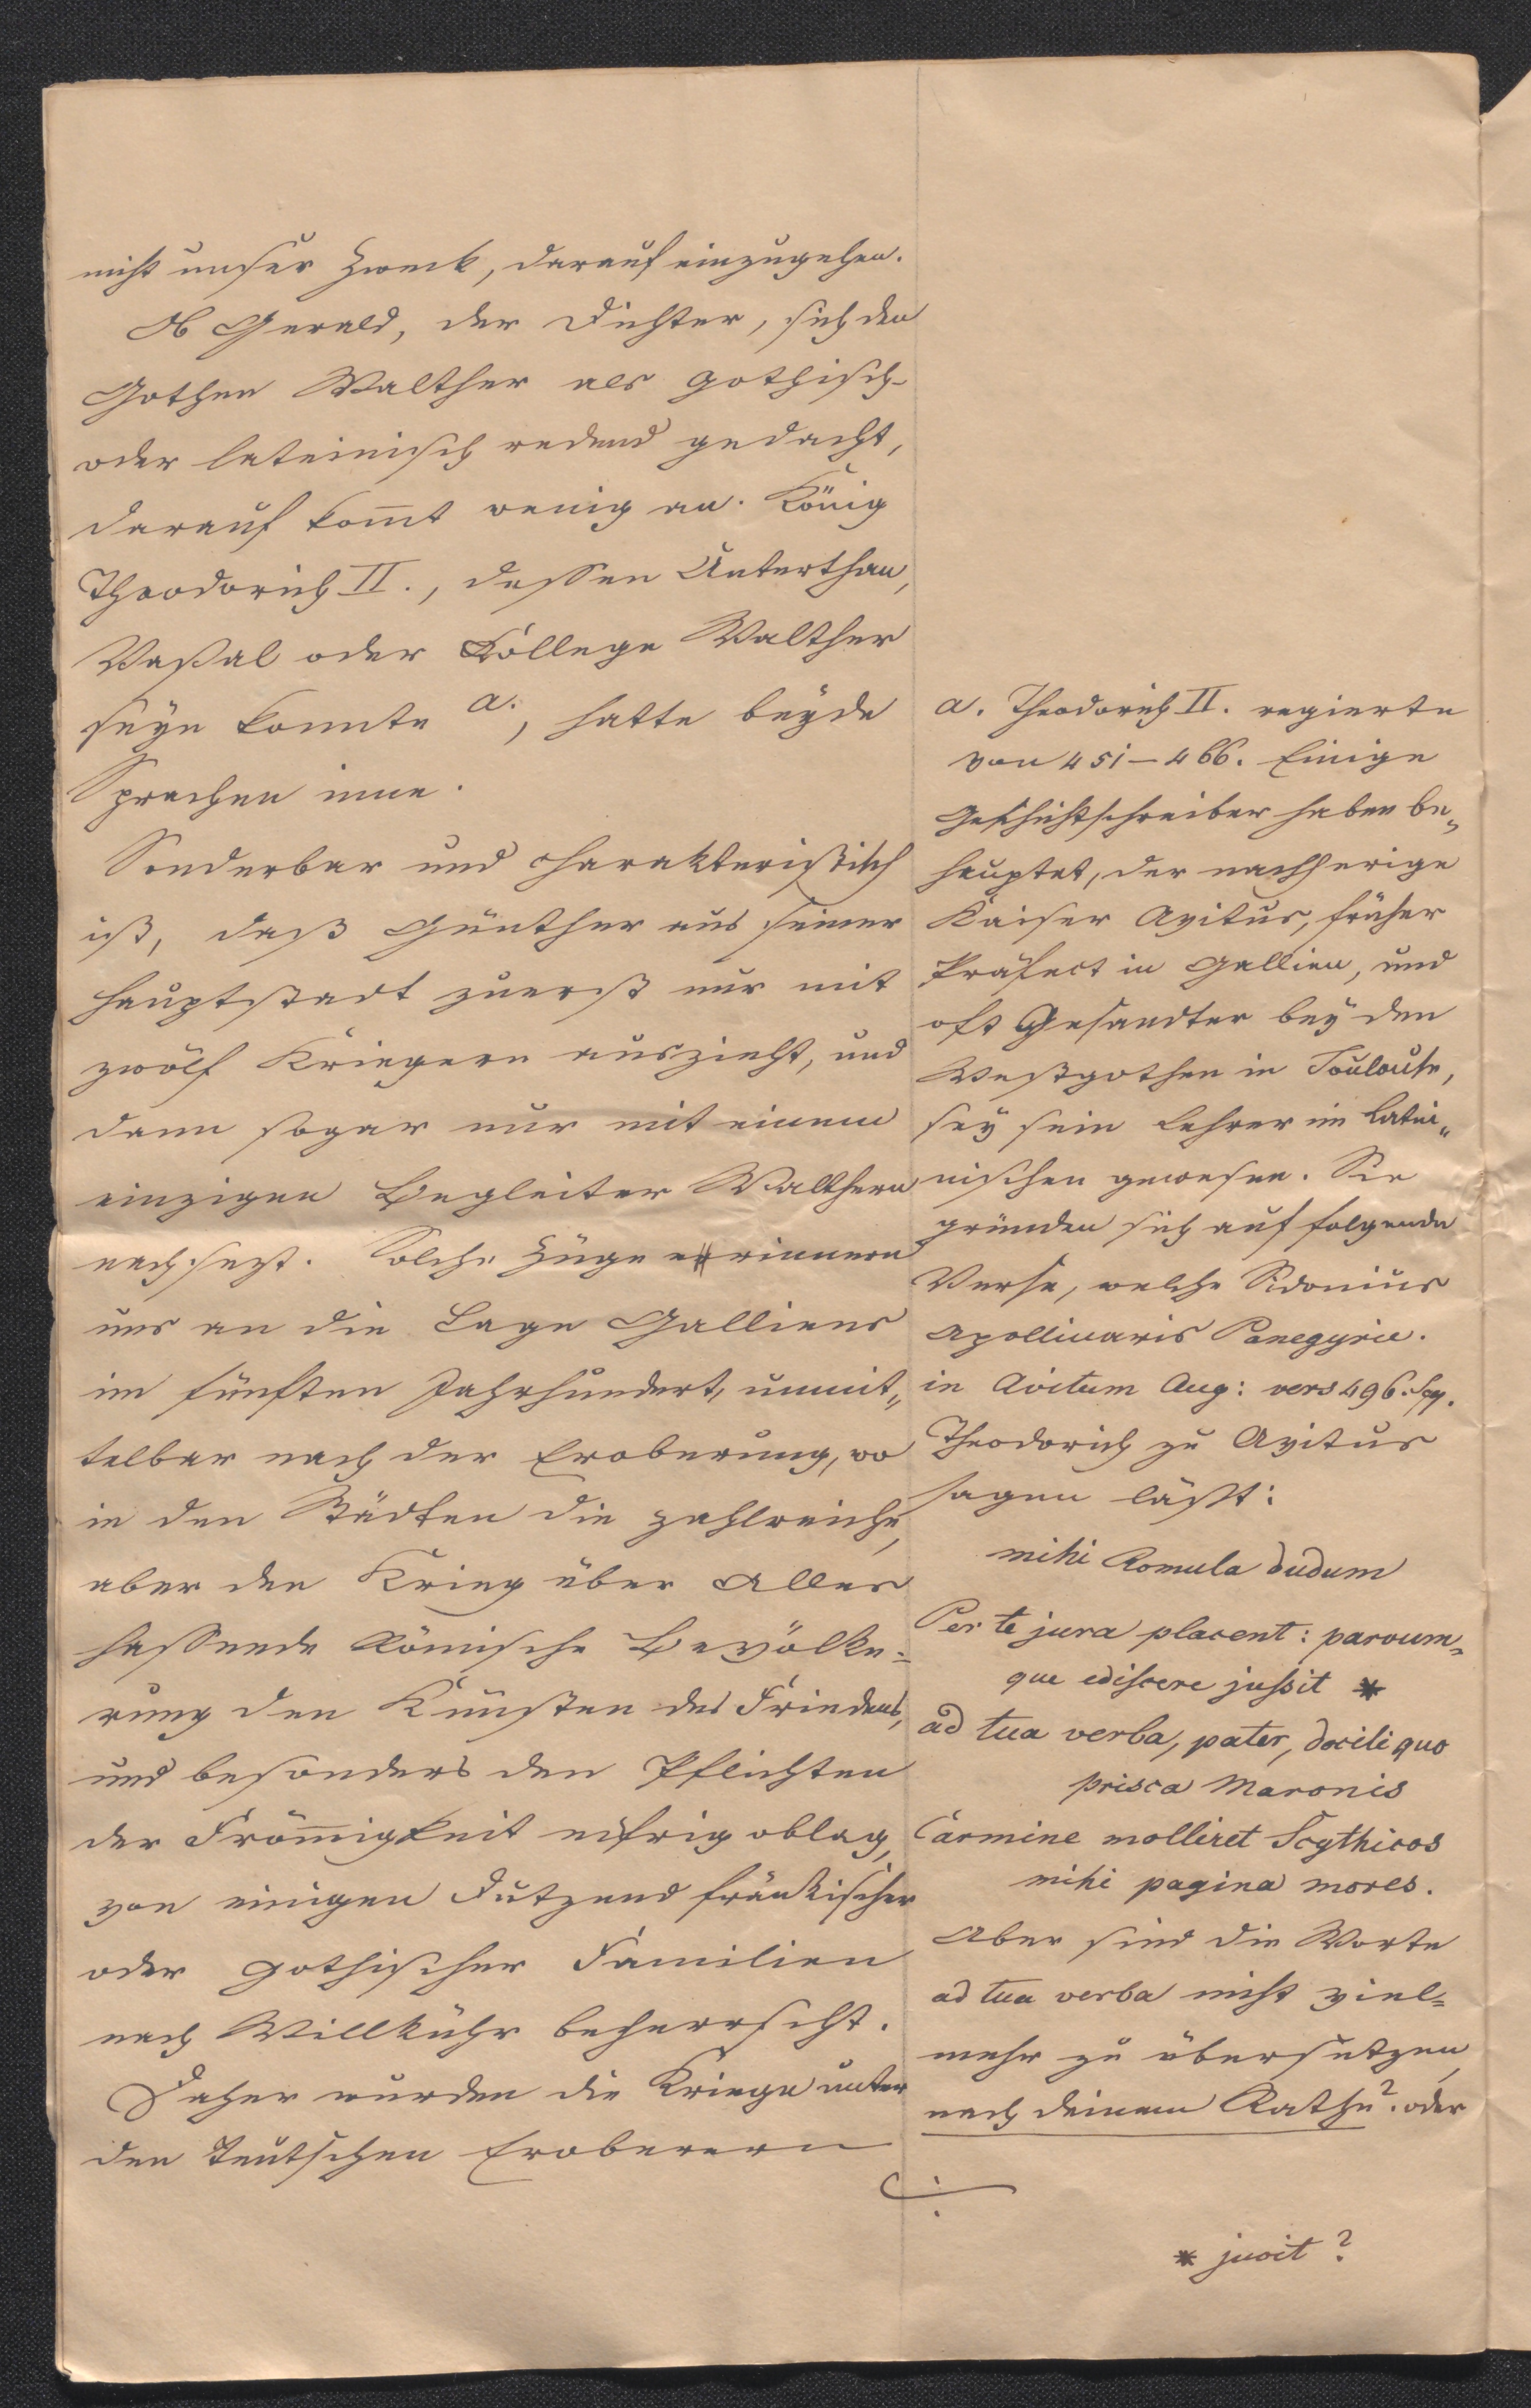 nicht unser Zweck, darauf einzugehen.
Ob Gerald, der Dichter, sich den
Gothen Walther als gothisch-
oder lateinisch redend gedacht,
darauf kom̄t wenig an. König
Theodorich II., dessen Unterthan,
Vaßal oder College Walther
seyn konnte a., hatte beyde
Sprachen inne.
Sonderbar und charakteristisch
ist, daß Günther aus seiner
Hauptstadt zuerst nur mit
zwölf Kriegern auszieht, und
dann sogar nur mit einem
einzigen Begleiter Walthern
nachsezt. Solche Züge errinnern
uns an die Lage Galliens
im fünften Jahrhundert, unmit„
telbar nach der Eroberung, wo
in den Städten die zahlreiche,
aber den Krieg über Alles
hassende Römische Bevölke=
rung den Künsten des Friedens,
und besonders den Pflichten
der From̄igkeit eifrig oblag,
von einigen Dutzend fränkischer
oder gothischer Familien
nach Willkühr beherrscht.
Daher wurden die Kriege unter
den teutschen Eroberern
a. Theodorich II. regierte
von 451–466. Einige
Geschichtschreiber haben be„
hauptet, der nachherige
Kaiser Avitus, früher
Präfect in Gallien, und
oft Gesandter bey den
Westgothen in Toulouse,
sey sein Lehrer im Latei„
nischen gewesen. Sie
gründen sich auf folgende
Verse, welche Sidonius
Apollinaris Panegyric.
in Avitum Aug: vers 496. sq.
Theodorich zu Avitus
sagen läßt:
mihi Romula dudum
Per te jura placent: parvum=
que ediscere jussit *
ad tua verba, pater, docili quo
prisca Maronis
Carmine molliret Scythicos
mihi pagina mores.
Aber sind die Worte
ad tua verba nicht viel=
mehr zu übersetzen,
nach deinem Rathe? oder
÷
* juvit?